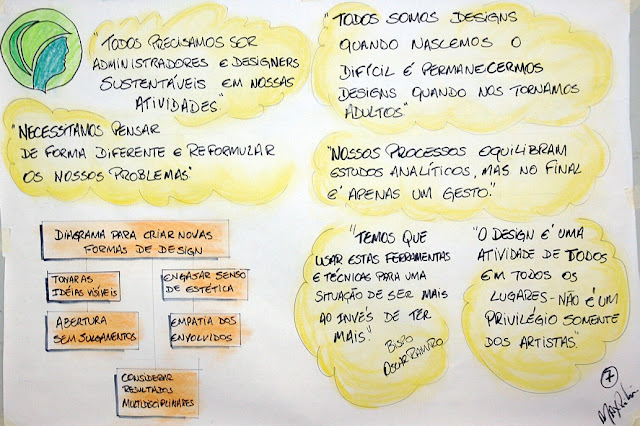 "TODOS PRECISAMOS SER
ADMINISTRADORES E DESIGNERS
SUSTENTÁVEIS EM NOSSAS
ATIVIDADES"
"TODOS SOMOS DESIGNS
QUANDO NASCEMOS O
DIFÍCIL É PERMANECERMOS
DESIGNS QUANDO NOS TORNAMOS
ADULTOS"
"NECESSITAMOS PENSAR
DE FORMA DIFERENTE E REFORMULAR
OS NOSSOS PROBLEMAS"
"NOSSOS PROCESSOS EQUILIBRAM
ESTUDOS ANALÍTICOS, MAS NO FINAL
É APENAS UM GESTO."
DIAGRAMA PARA CRIAR NOVAS
FORMAS DE DESIGN
TONAR AS
IDÉIAS VISÍVEIS
ENGAJAR SENSO
DE ESTÉTICA
ABERTURA
SEM JULGAMENTOS
EMPATIA DOS
ENVOLVIDOS
CONSIDERAR
RESULTADOS
MULTIDISCIPLINARES
"TEMOS QUE
USAR ESTAS FERRAMENTAS
E TÉCNICAS PARA UMA
SITUAÇÃO DE SER MAIS
AO INVÉS DE TER
MAIS."
BISPO
OSCAR
"O DESIGN É UMA
ATIVIDADE DE TODOS
EM TODOS OS
LUGARES - NÃO É UM
PRIVILÉGIO SOMENTE
DOS ARTISTAS".
7